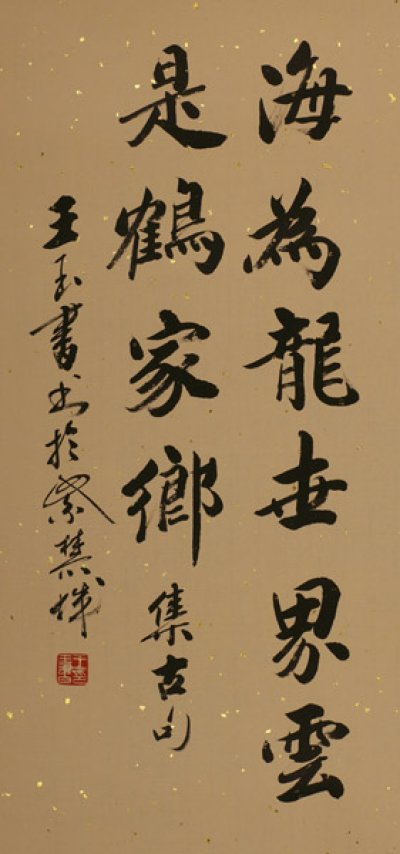 海為龍世界雲
是鶴家鄉集古句
王玉書书於紫禁城